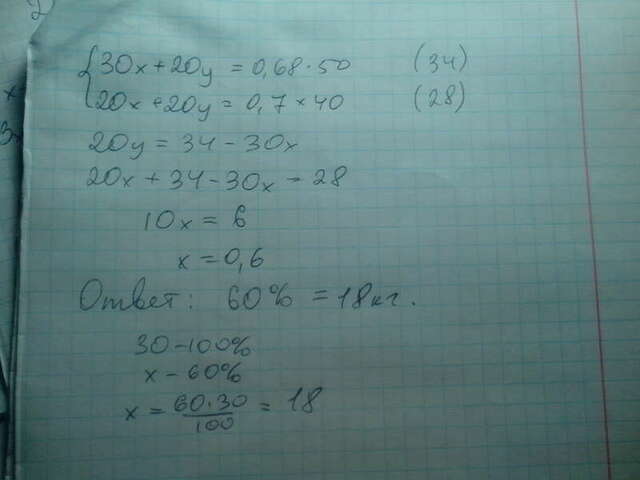 30x + 20y = 0,68 · 50 (34)
20x + 20y = 0,7 × 40 (28)
20y = 34 - 30x
20x + 34 - 30x = 28
10x = 6
x = 0,6
Ответ: 60% = 18 кг.
30 - 100%
x - 60%
x = 60·30/100 = 18